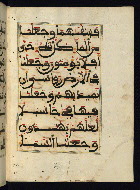 ففتقنهما وجعلنا
من الماء كل شيء حي
افلا يومنون وجعلنا
في الارض رواسي ان
تميد بهم وجعلنا
فيها فجاجا سبلا
لعلهم يهتدون
وجعلنا السما